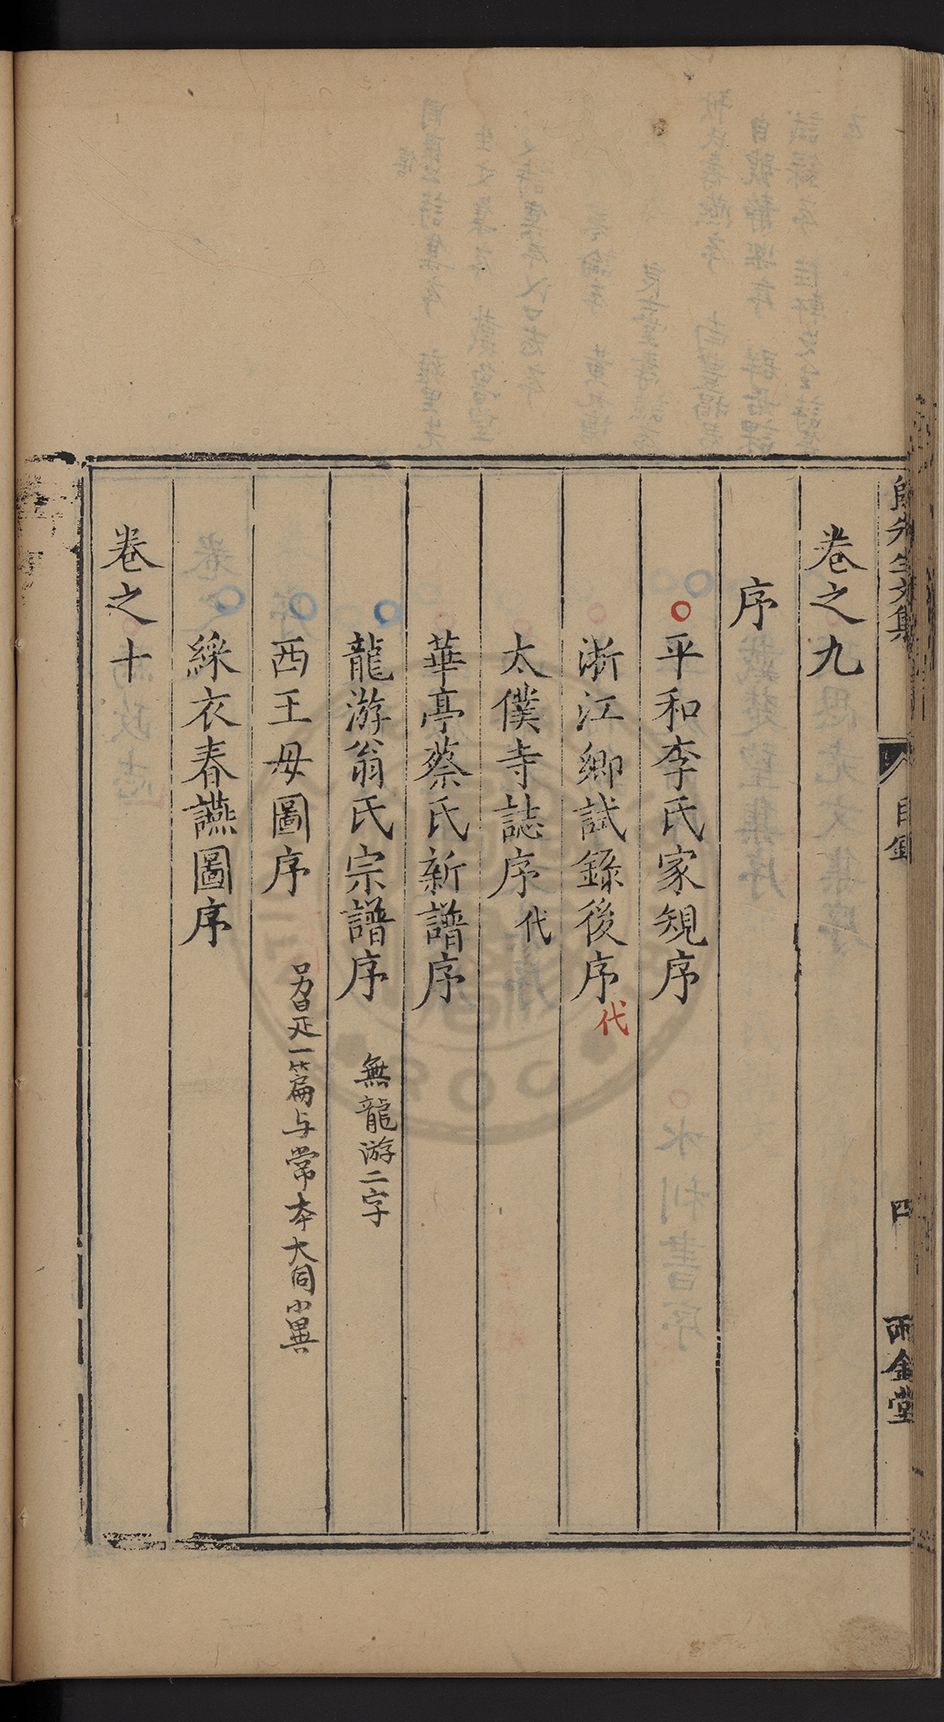 卷之九
序
平和李氏家規序
浙江鄉試錄後序代
太僕寺誌序代
華亭蔡氏新譜序
龍游翁氏宗譜序 無龍游二字
西王母圖序 另是一篇与常本大同小異
綵衣春讌圖序
卷之十
先生文集 目錄 四 雨金堂